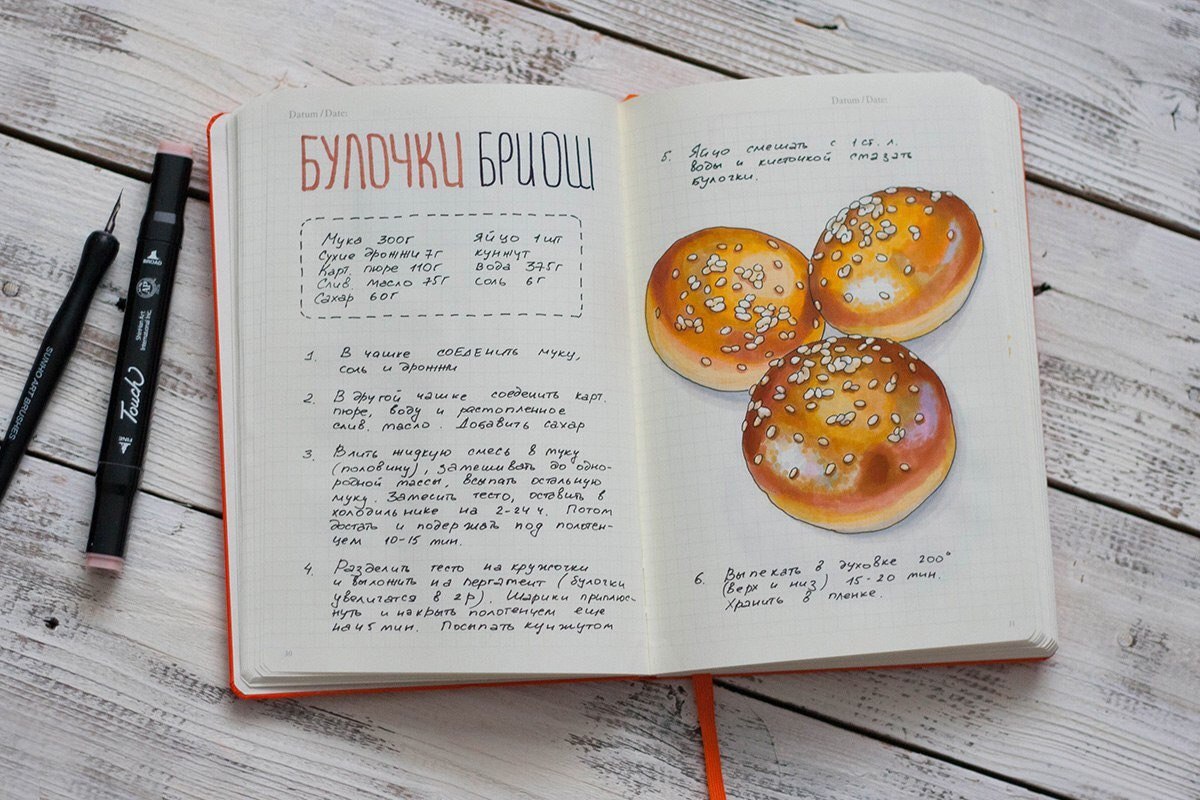 Datum / Date:
БУЛОЧКИ БРИОШ
Мука 300г
Сухие дрожжи 7г
Карт. пюре 110г
Слив. масло 75г
Сахар 60г
Яйцо 1 шт
кунжут
Вода 375г
Соль 6г
1. В чашке соеденить муку,
соль и дрожжи
2. В другой чашке соеденить карт.
пюре, воду и растопленное
слив. масло. Добавить сахар
3. Влить жидкую смесь в муку
(половину), замешивать до одно-
родной массы, всыпать остальную
муку. Замесить тесто, оставить в
холодильнике на 2-24 ч. Потом
достать и подержать под полотен-
цем 10-15 мин.
4. Разделить тесто на кружочки
и выложить на пергамент (булочки
увеличатся в 2р). Шарики приплюс-
нуть и накрыть полотенцем еще
на 45 мин. Посыпать кунжутом
30
Datum / Date:
5. Яйцо смешать с 1 ст. л.
воды и кисточкой смазать
булочки.
6. Выпекать в духовке 200°
(верх и низ) 15-20 мин.
Хранить в пленке.
31
SUNHO ART BRUSHES
BROAD
AP
ShinHan Art
International Inc.
Touch
FINE